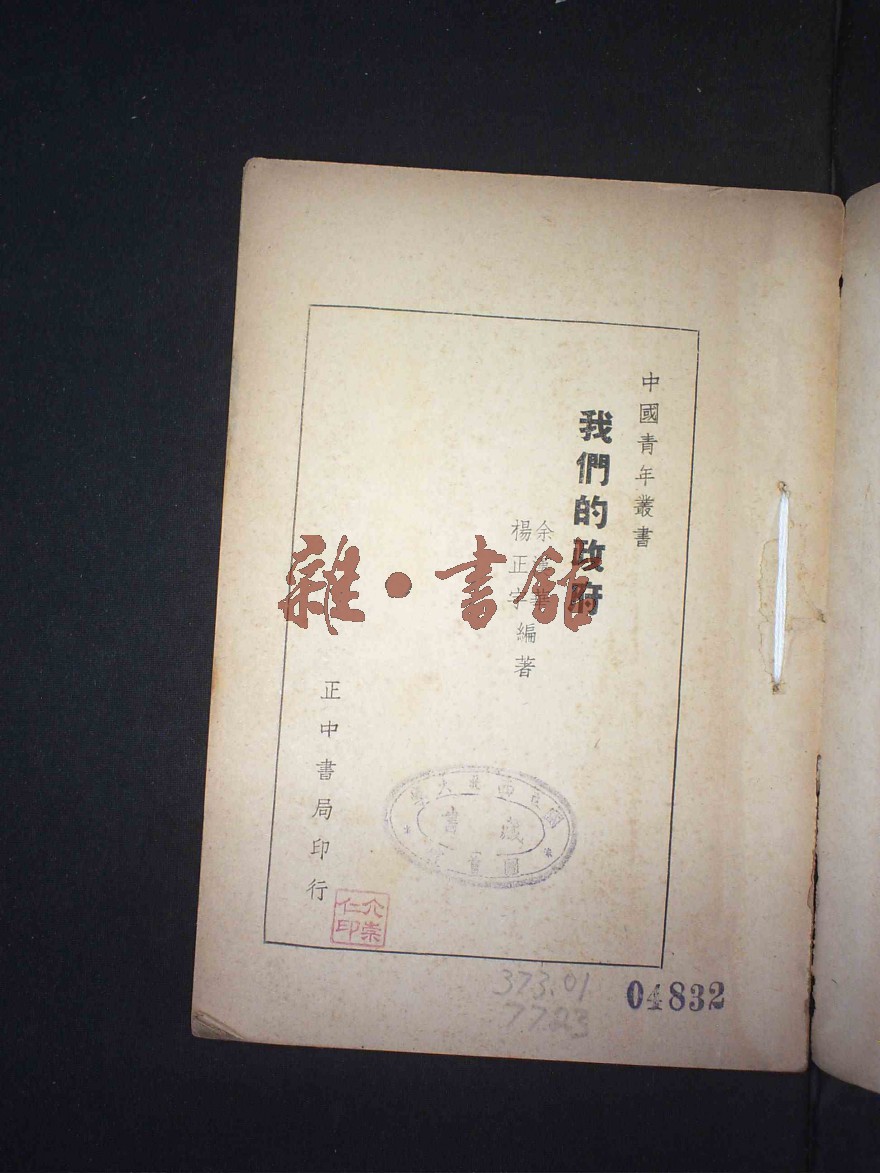 中國青年叢書
我們的政府
余漢華
楊正宇編著
正中書局印行
國立西北大學
藏書
圖書館
仁印
04832
373.01
7723
雜·書舘